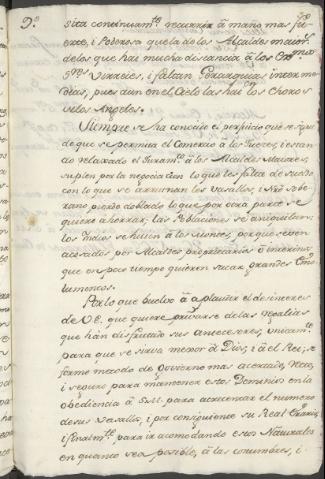 sita continuamte. recurrir à mano mas fu-
erte, i Poderosa que la de los Alcaldes maior.
de los que hai mucha distancia à los Exmos.
Sres. Virreies, i faltan Gerarquias interme-
dias, pues aun en el Cielo las hai en los Choros
de los Angeles.
Siempre se ha conocido el perjuicio que se sigue
de que se permita el Comercio à los Jueces, i estan-
do relaxado el Juramto. à los Alcaldes Maiores,
suplen por la negociacion lo que les falta de sueldo
con lo que se arruinan los Vasallos, i Nro. Sobe-
rano pierde doblado lo que por otra parte se
quiere ahorrar; las Poblaciones se aniquilan;
los Indios se huien à los Montes, porque se ven
acosados por Alcaldes proprietarios ò interinos
que en poco tiempo quieren sacar grandes Emo-
lumentos.
Por lo que buelvo à aplaudir el desinteres
de VE. que quiere privarse de las Regalias
que han disfrutado sus antecesores, unicamte.
para que se sirva mejor à Dios, i à el Rei; se
forme metodo de govierno mas acertado, Util,
i seguro para mantener estos Dominios en la
obediencia à S.M. para acrecentar el numero
de sus Vasallos, i por consiguiente su Real Erario,
i finalmte. para ir acomodando estos Naturales
en quanto sea posible, à las costumbres, i